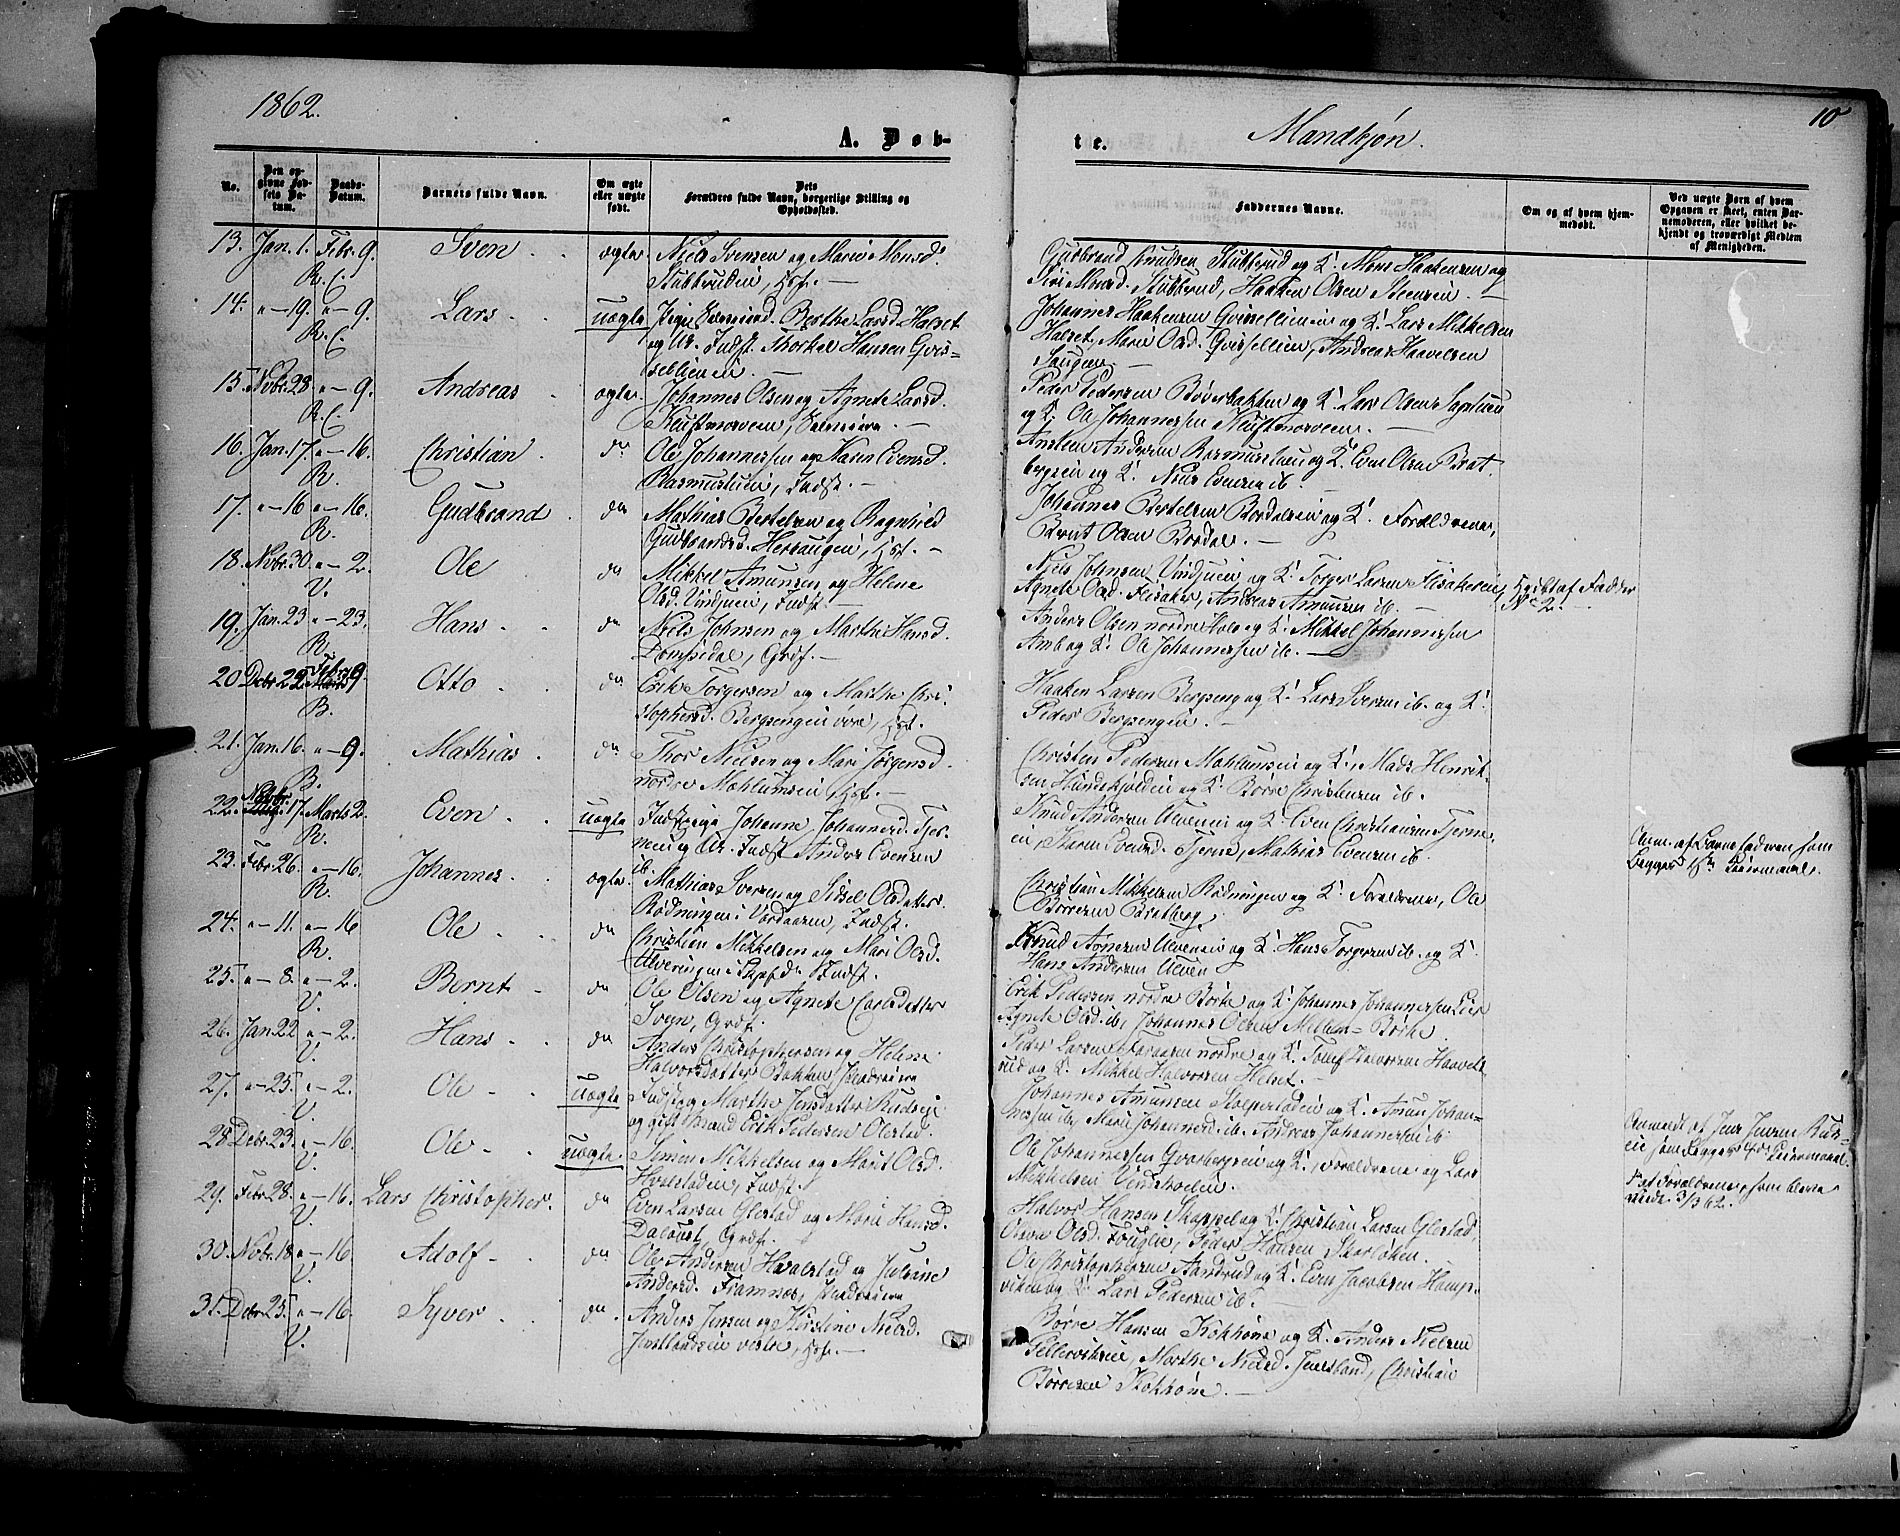 1862.
A. Døb-
te.
Mandkjøn.
10
No.
Den op-
givne Fød-
sels Da-
tum.
Daabs-
Datum.
Barnets fulde Navn.
Om ægte
eller uægte
født.
Dets
Forældres fulde Navn, borgerlige Stilling og
Opholdssted.
Faddernes Navne.
Om og af hvem hjem-
medøbt.
Ved uægte Børn af hvem
Opgaven er skeet, enten Bar-
nemoderen, eller hvilket be-
kjendt og troværdigt Medlem
af Menigheden.
13. Jan. 1. Febr. 9. Sven ægte. Niels Svensen og Marie Monsd.
R. C. Stubberudeie, Hsf.
Gudbrand Knudsen Stubberud og K. Mons Haakensen og
Siri Monsd. Stubberud, Haaken Olsen Steenseie.
14. " 19. " 9. Lars uægte Pige Berthe Larsd. Halset
R. C. og U. Indst. Thorkel Hansen Gris-
sellieneie.
Johannes Haakensen Grissellieneie og K. Lars Mikkelsen
Halset, Marie Olsd. Grissellien, Andreas Haavelsen
Haugen
15. Novbr. 28 " 9. Andreas ægte. Johannes Olsen og Agnete Larsd.
R. C.
Peder Pedersen Bøverbakken og K. Lars Olsen
og K. Ole Johannessen
16. Jan. 17. " 16. Christian do Ole Johannessen og Karen Evensd.
R. Rasmuslien, Indst.
Andersen Rasmuslien og K. Even Olsen Brat
bergseie og K. Evensen ib.
17. " 16 " 16. Gudbrand do Mathias Bertelsen og Ragnhild
R. Gudbrandsd. Herhaugen, Hsf.
Johannes Bertelsen Bordalseie og K. Forældrene,
Bernt Olsen Bordal.
18. Novbr. 30. " 2. Ole do Mikkel Amunsen og Helene
V. Olsd. Vindjueie, Indst.
Niels Johnsen Vindjueie og K. Torger Larsen Flisakereie,
Agnete Olsd. Flisaker, Andreas Amunsen ib.
Hjdbt af Fadder
No 2.
19. Jan. 23 " 23. Hans do Niels Johnsen og Marthe Hansd.
R. Grdf.
Anders Olsen nordre Holo og K. Mikkel Johannessen
Amb og K. Ole Johannessen ib.
20 Debr. 22. Febr. 9. Otto do Erik Torgersen og Marthe Chri-
B. stophersd. Bergsengeie øvre, Hsf.
Haaken Larsen Bergseng og K. Lars Iversen ib. og K.
Peder Bergsengeie.
21. Jan. 16. " 9. Mathias do Thor Nielsen og Mari Jørgensd.
B. nordre Mæhlumseie Hsf.
Christen Pedersen Mæhlumseie og K., Mads Henrik-
sen Hundskjoldeie og K. Børre Christensen ib.
22. Novbr. 17. Marts 2. Even uægte Indstpige Johanne Johannesd. Tjer-
R. neeie og U. Indst Anders Evensen
ib.
Knud Andersen Ulveneie og K. Even Christiansen Tjerne-
eie, Karen Evensd. Tjerne, Mathias Evensen ib.
Anm. af Barnefaderen som
begges 1ste Leiermaal.
23. Febr. 26. " 16. Johannes ægte. Mathias Iversen og Sidsel Olsdatter
R. Rødningen i Vardaasen, Indst.
Christian Mikkelsen Rødningen og K. Forældrene, Ole
Børresen Bratberg
24. " 11. " 16 Ole do Christian Mikkelsen og Mari Olsd.
R. Indst.
Knud Arnesen Ulveneie og K. Hans Torgersen ib. og K.
Hans Andersen Ulven
25. " 8. " 2. Bernt do Ole Olsen og Agnete Carlsdatter
V. Sveen, Grdf.
Erik Pedersen nordre Børke og K. Johannes Johannessen Lier
Agnete Olsd. ib, Johannes Olsen Mellem-Børke
26. Jan. 22 " 2. Hans do Anders Christophersen og Helene
V. Halvorsdatter Bakken
Peder Larsen Faraasen nordre og K. Halvorsen Haavels-
rud og K. Mikkel Halvorsen Helset.
27. " 25. " 2. Ole uægte Indstpg Marthe Jensdatter Rudseie
V. og gift Mand Erik Pedersen Olestad.
Johannes Amunsen Stolperladeie og K. Amun Johan-
nessen ib, Marie Johannesd. ib. Andreas Johannessen ib
Anmeldt af Jens Jensen Ruds-
eie som begges 1ste Leiermaal.
28 Debr. 23. " 16. Ole uægte. Simen Mikkelsen og Marit Olsd.
V. Hvalstadeie, Indst.
Ole Johannessen Gvarbergseie og K., Forældrene og Lars
Mikkelsen
Af Forældrene, som bleve
viede 3/3 62.
29. Febr. 28. " 16. Lars Christopher. do Even Larsen Glestad og Marie Hansd.
V. Grdf.
Halvor Hansen Skappel og K. Christian Larsen Glestad,
Olava Olsd. Fouglie, Peder Hansen Skarløken.
30. Nobr. 18. " 16 Adolf do Ole Andersen Hvalstad og Juliane
V. Andersd. Framnæs,
Ole Christophersen Aandrud og K. Even Jacobsen Hamp-
viken og K. Lars Pedersen ib.
31. Debr. 25. " 16. Syver do. Anders Jensen og Kirstine Nielsd.
V. Juvlandseie vestre, Hsf.
Børre Hansen Kokhøne og K. Anders Nielsen
Pellervikseie, Marthe Nielsd. Juvland, Christian
Børresen Kokhøne.